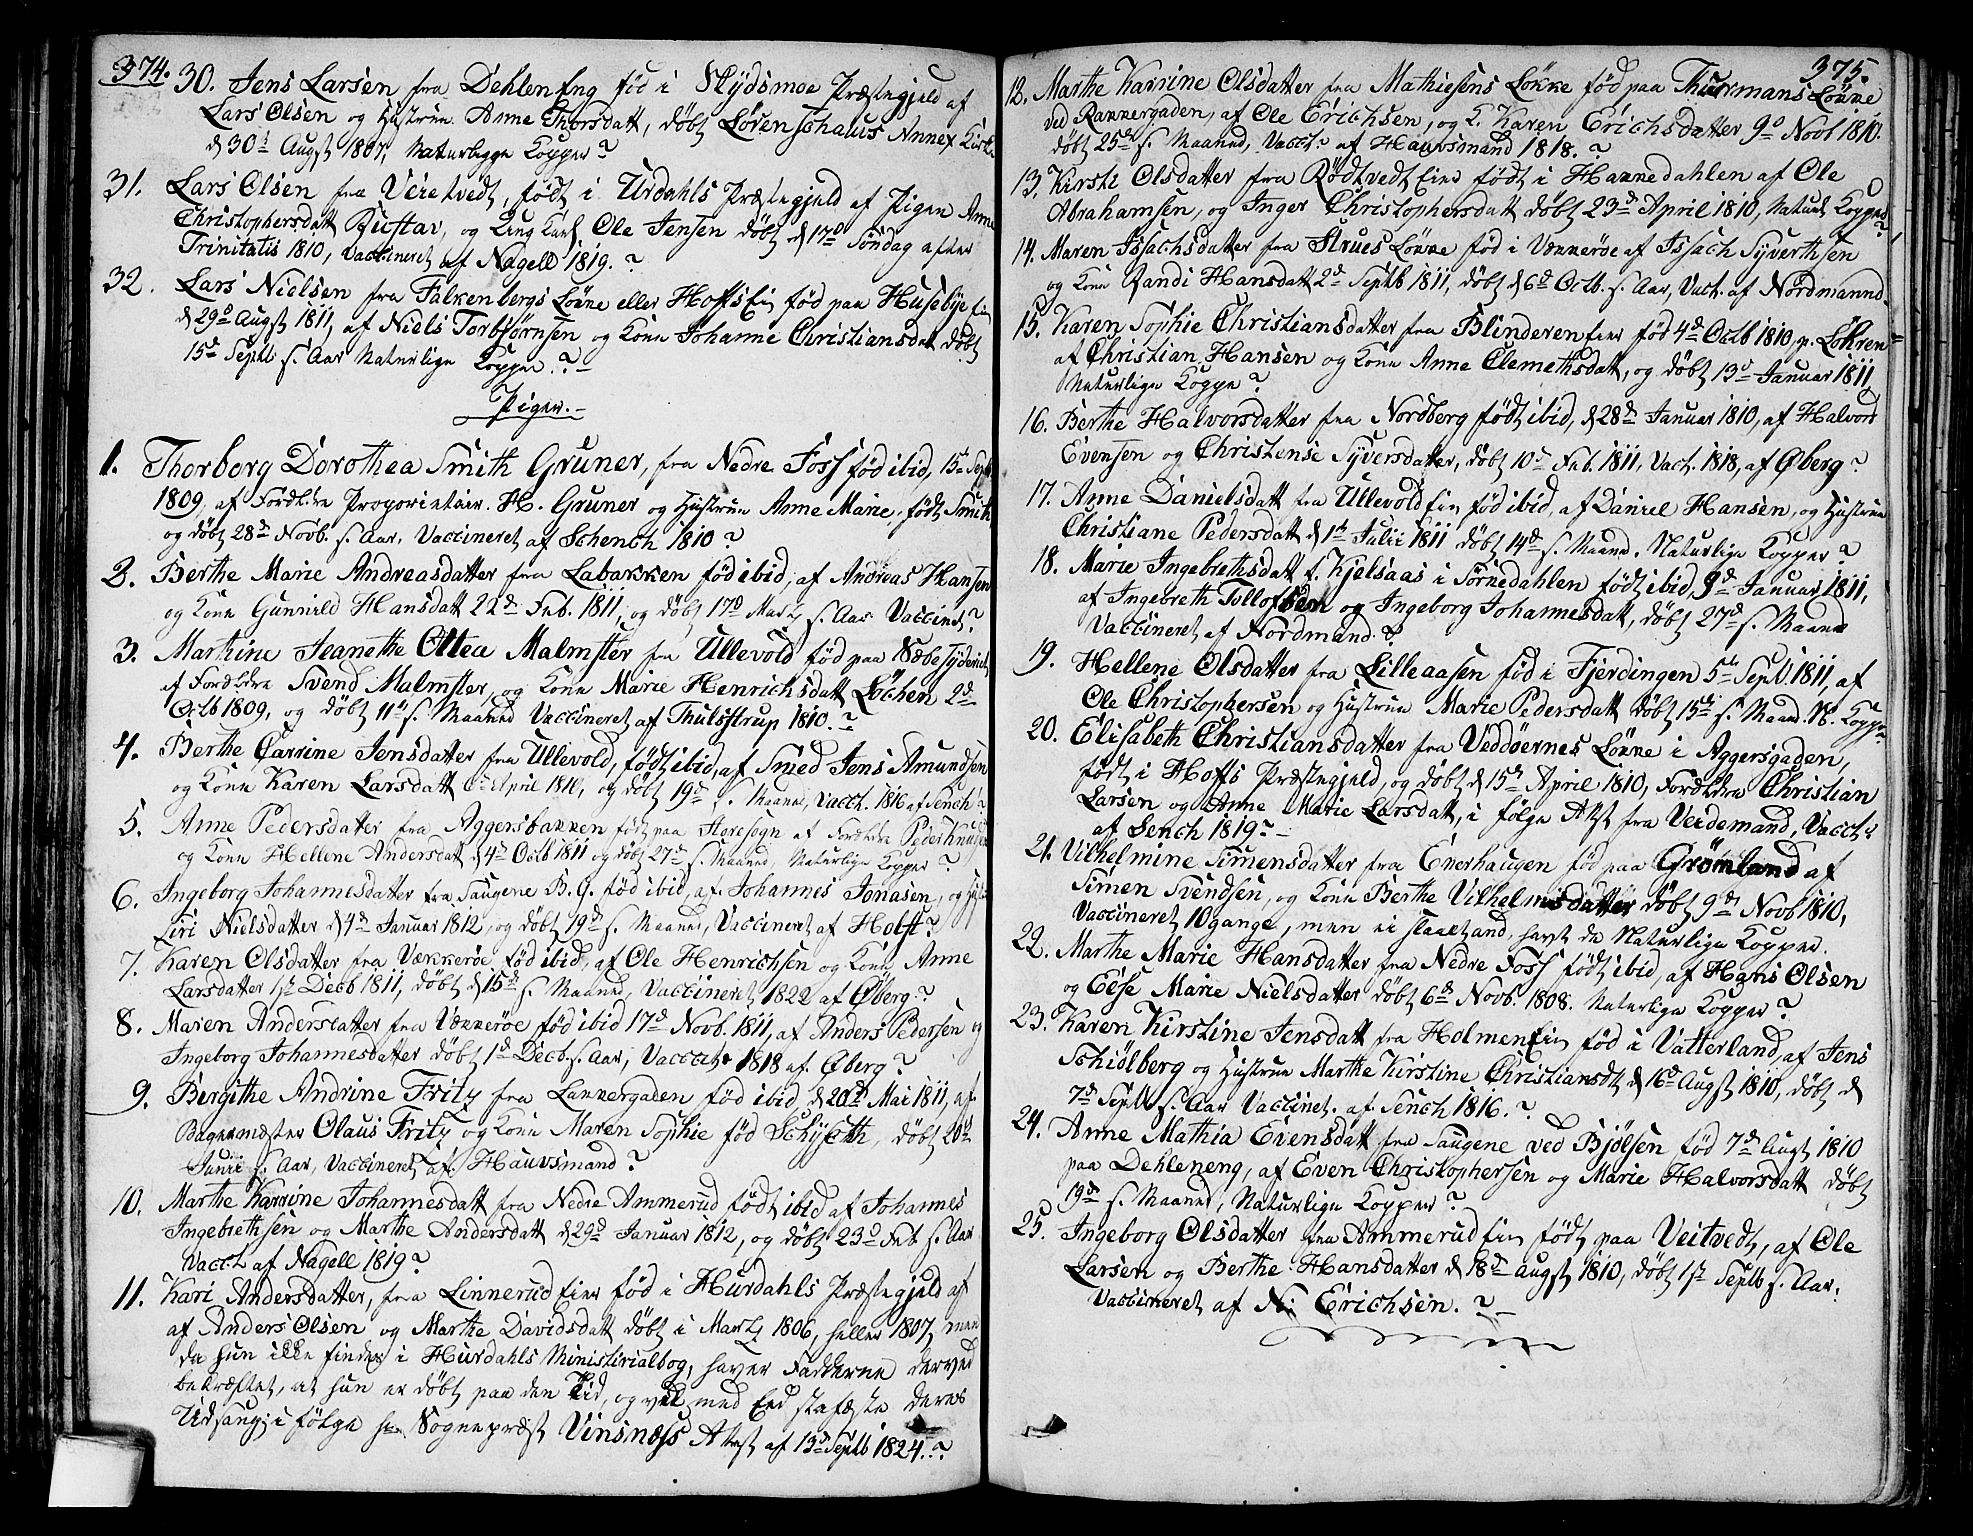 374.
30. Jens Larsen fra Dehleneng fød i Skydsmoe Præstegjeld af
Lars Olsen og Hustrue Anne Thorsdatt, døbt Lørenschaus Annex Kirke
d 30te Augst 1807, Naturligge Kopper?
31. Lars Olsen fra Veietvedt, født i Urdahls Præstegjeld af Pigen Anne
Christophersdatt Bustar, og Ung Karl Ole Jensen døbt d 17de Søndag after
Trinitatis 1810, Vaccineret af Nagell 1819.?
32. Lars Nielsen fra Falkenbergs Løkke eller Hoffs Ein fød paa Husebye Ein
d 29de Augst 1811, af Niels Torbjørnsen og Kone Johanne Christiansdat døbt
15de Septb s. Aar Naturlige Kopper.?
Piger.
1. Thorborg Dorothea Smith Gruner, fra Nedre Foss fød ibid, 15de Septb
1809, af Forældre Proprietair H. Gruner og Hustrue Anne Marie, født Smith
og døbt 28de Novb. s. Aar, Vaccineret af Schench 1810?
2. Berthe Marie Andreasdatter fra Labakken fød ibid, af Andreas Hansen
og Kone Gunnild Hansdatt 22de Feb. 1811, og døbt 17de Marty s. Aar Vaccinet?
3. Marthine Jeanethe Ottea Malmster fra Ullevold fød paa Sæbesyderiet
af Forældre Svend Malmster, og Kone Marie Henrichsdatt Løchen 2de
Octb 1809, og døbt 11te s. Maaned Vaccineret af Thulstrup 1810.?
4. Berthe Carrine Jensdatter fra Ullevold, født ibid, af Smed Jens Amundsen
og Kone Karen Larsdatt April 1810, og døbt 19de s. Maaned, Vacct. 1816 af Sench?
5. Anne Pedersdatter fra Aggersbakken født paa Storesogn af Forældre Peder Knudsen
og Kone Hellene Andersdatt d 4de Octb 1811 og døbt 27de s. Maaned, Naturlige Kopper?
6. Ingeborg Johannesdatter fra Saugene B. G. fød ibid, af Johannes Jonasen, og
Siri Nielsdatter d 4de Januar 1812, og døbt 19de s. Maaned, Vaccineret af Holst?
7. Karen Olsdatter fra Vækkerøe fød ibid, af Ole Henrichsen og Kone Anne
Larsdatter 1ste Decb 1811, døbt d 15de s. Maaned, Vaccineret 1822 af Øberg?
8. Maren Andersdatter fra Vækkerøe fød ibid 17de Novb. 1811, af Anders Pedersen og
Ingeborg Johannesdatter døbt 1ste Decb. s. Aar, Vacct. 1818 af Øberg?
9. Bergithe Andrine Fritz fra Lakkergaden fød ibid, d 20de Mai 1811, af
Bagermester Olaus Fritz og Kone Maren Sophie fød Schjeth, døbt 20de
Junii s. Aar, Vaccineret af Hauvsmand?
10. Marthe Karrine Johannesdatt fra Nedre Ammerud født ibid af Johannes
Ingebrethsen og Marthe Andersdatt d 29de Januar 1812, og døbt 23de Feb s. Aar
Vacct. af Nagell 1819?
11. Kari Andersdatter, fra Linnerud Eier fød i Hurdahls Præstegjeld af
af Anders Olsen og Marthe Davidsdatt døbt i Marty 1806, heller 1807, men
da hun ikke findes i Hurdahls Ministirialbog, haver Fadderne derved
bekræftet, at hun er døbt paa den Tid, og vil med Eed stafæste deres
Udsaug, i følge hr Sognepræst Vinsnæss Attest af 13de Septb 1824.?
375.
12. Marthe Karrine Olsdatter fra Mathiesens Løkke fød paa Thurmans Løkke
ved Rakkergaden, af Ole Erichsen, og K. Karen Erichsdatter 9de Novb 1810.
døbt 25de s. Maaned, Vacct. af Hauvsmand 1818.?
13. Kirsti Olsdatter fra Rødtvedt Eier født i Hakkedahlen af Ole
Abrahamsen, og Inger Christophersdatt døbt 23de April 1810, Naturl Kopper?
14. Maren Issachsdatter fra Strues Løkke fød i Vækkerøe af Issach Syverthsen
og Kone Randi Hansdatt 2de Septb 1811, døbt d 6de Octb. s. Aar, Vact. af Nordmannd
15. Karen Sophie Christiansdatter fra Blinderen Eier fød 4de Octb 1810, p. Løkren=
af Christian Hansen og Kone Anne Clemethsdatt, og døbt 13de Januar 1811,
Naturlige Kopper?
16. Berthe Halvorsdatter fra Nordberg født ibid, d 28de Januar 1810, af Halvord
Evensen og Christense Syversdatter, døbt 10de Feb. 1811, Vact. 1818, af Øberg?
17. Anne Danielsdatt fra Ullevold Ein fød ibid, af Daniel Hansen, og Hustrue
Christiane Pedersdatt d 1ste Julii 1811 døbt 14de s. Maaned. Naturlige Kopper?
18. Marie Ingebrethsdatt f. Kjelsaas i Sørkedahlen født ibid, 9de Januar 1811,
af Ingebreth Tollofsen og Ingeborg Johannesdatt, døbt 27de s. Maaned
Vaccineret af Nordmand.?
19. Hellene Olsdatter fra Lilleaasen fød i Fjerdingen 5te Septb. 1811, af
Ole Christophersen og Hustrue Marie Pedersdatt døbt 15de s. Maaned. N. Kopper
20. Elisabeth Christiansdatter fra Veddøernes Løkke i Aggersgaden,
født i Hoffs Præstegjeld, og døbt d 15de April 1810, Forældre Christian
Larsen og Anne Marie Larsdatt, i følge Atst fra Veidemand, Vacct.
af Sench 1819?
21. Vilhelmine Simensdatter fra Enerhaugen fød paa Grønland af
Simen Svendsen, og Kone Berthe Vilhelmsdatter døbt 9de Novb 1810,
Vaccineret 10 gange, men ei slaaet and, havt de Naturlige Kopper.
22. Marthe Marie Hansdatter fra Nedre Foss født ibid, af Hans Olsen
og Else Marie Nielsdatter døbt 6de Novb. 1808. Naturlige Kopper?
23. Karen Kirstine Jensdatt fra Holmen Ein fød i Vatterland, af Jens
Schiølberg og Hustrue Marthe Kirstine Christiansdt d 16de Augst 1810, døbt d
7de Septb s. Aar Vaccinet. af Sench 1816.?
24. Anne Mathia Evensdatt fra Saugene ved Bjølsen fød 7de Augst 1810
paa Dehleneng, af Even Christophersen og Marie Halvorsdatt døbt
19de s. Maaned, Naturlige Kopper?
25. Ingeborg Olsdatter fra Ammerud Ein født paa Veitvedt, af Ole
Larsen og Berthe Hansdatter d 18de Augst 1810, døbt 1ste Septb s. Aar.
Vaccineret af N: Erichsen.?